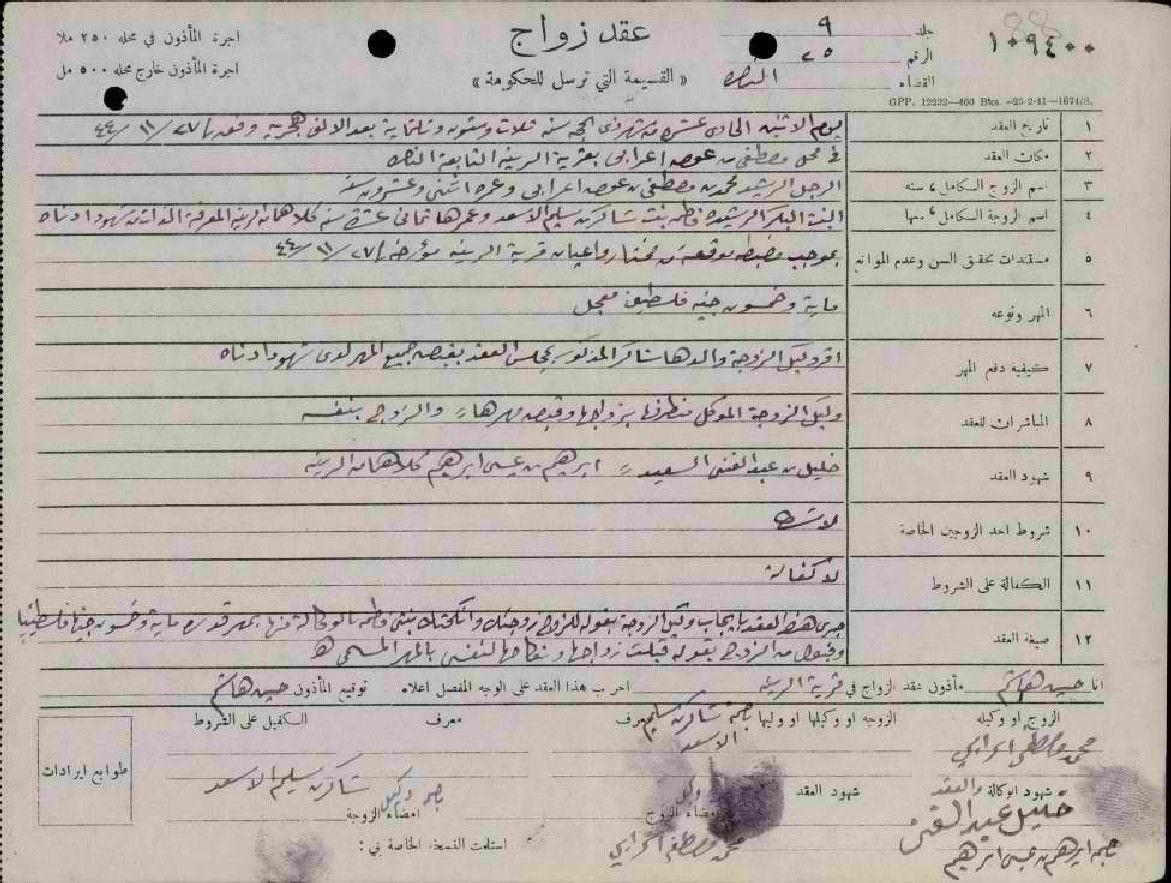 ١٠٩٤٠٠
جلد ٩
الرقم ٢٥
القضاء
عقد زواج
« القسيمة التي ترسل للحكومة »
اجرة المأذون في محله ٢٥٠ ملا
اجرة المأذون خارج محله ٥٠٠ مل
GPP. 12232—400 Bks.—23-2-41—1674/S.
١ تاريخ العقد يوم الاثنين الحادي عشر من شهر ذي الحجة سنة ثلاث وستون وثلثماية بعد الالف هجرية وفي ٢٧/١١/٤٤
٢ مكان العقد في محل مصطفى بن عوض اعرابي بقرية الرينه التابعة الناصره
٣ اسم الزوج الكامل و سنه الرجل الرشيد محمد بن مصطفى بن عوض اعرابي وعمره اثنى وعشرون سنة
٤ اسم الزوجة الكامل و سنها البنت البكر الرشيده فاطمه بنت شاكر بن سليم الاسعد وعمرها ثماني عشرة سنه كلاهما من الرينه المعرفة الذات من شهود ادناه
٥ مستندات تحقق السن وعدم الموانع بموجب مضبطه موقعة من مختار واعيان قرية الرينه مؤرخة ٢٧/١١/٤٤
٦ المهر ونوعه ماية وخمسون جنيه فلسطيني معجل
٧ كيفية دفع المهر اقر وكيل الزوجة والدها شاكر المذكور بمجلس العقد بقبضه جميع المهر لدى شهود ادناه
٨ المباشران للعقد وكيل الزوجة الموكل من طرفها بزواجها وقبض مهرها والزوج بنفسه
٩ شهود العقد خليل بن عبد الغني السعيد ابرهيم بن عيسى ابرهيم كلاهما من الرينه
١٠ شروط احد الزوجين الخاصة لا شرط
١١ الكفالة على الشروط لا كفالة
١٢ صيغة العقد جرى هذا العقد بايجاب وكيل الزوجة بقوله للزوج زوجتك وانكحتك بنتي فاطمه بالوكالة عنها بمهر قدره ماية وخمسون جنيها فلسطينيا
وقبول من الزوج بقوله قبلت زواجها ونكاحها لنفسي بالمهر المسمى
انا حسين هاشم مأذون عقد الزواج في قرية الرينه اجرب هذا العقد على الوجه المفصل اعلاه توقيع المأذون حسين هاشم
الزوج او وكيله الزوجه او وكيلها او وليها معرف معرف الكفيل على الشروط
محمد مصطفى اعرابي بصمة شاكر بن سليم الاسعد
شهود الوكالة والعقد شهود العقد
خليل عبد الغني
بصمة ابرهيم بن عيسى ابرهيم
امضاء الزوج
محمد مصطفى اعرابي
امضاء الزوجة
بصمة وكيل شاكر بن سليم الاسعد
استلمت النسخة الخاصة بي :
طوابع ايرادات